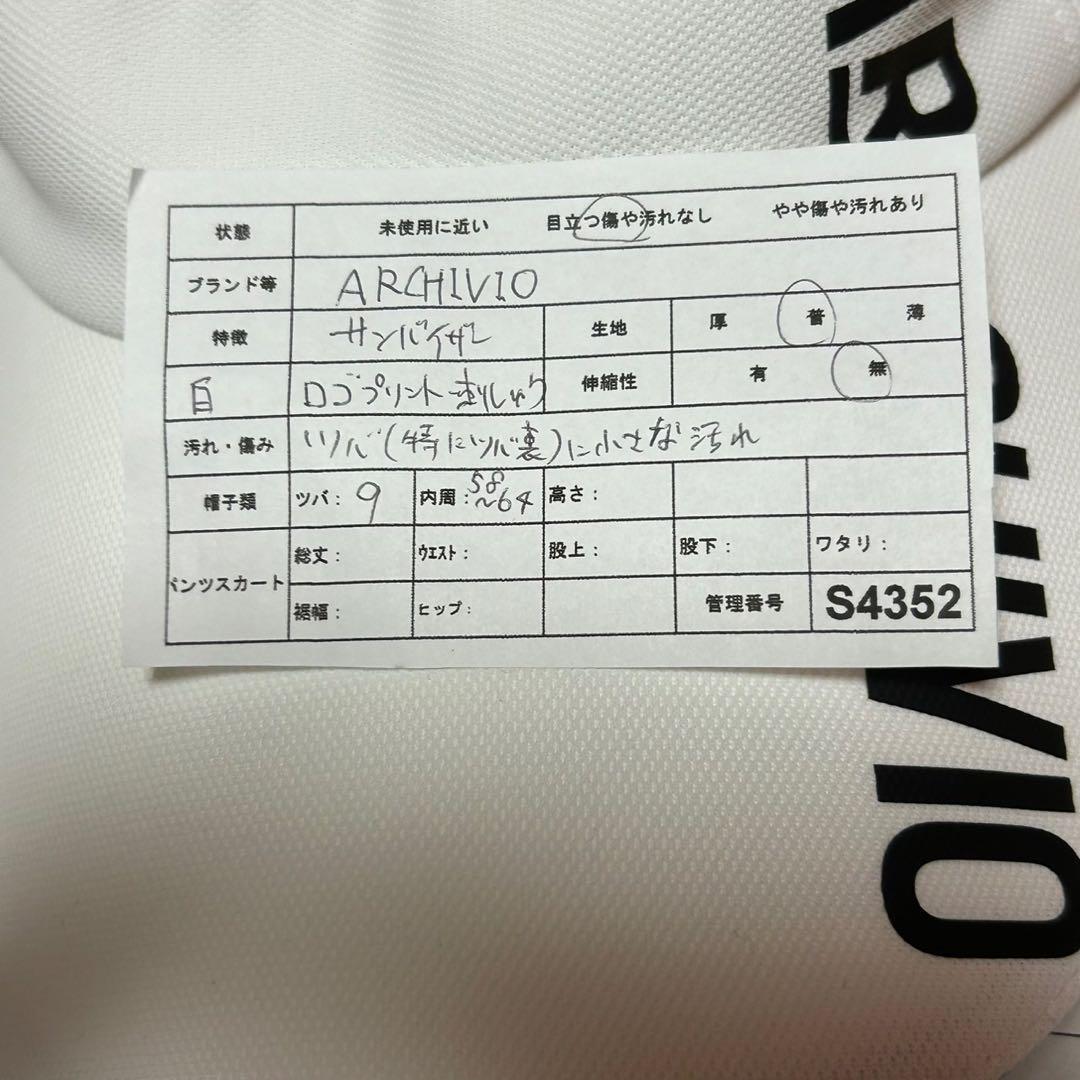 状態 未使用に近い 目立つ傷や汚れなし やや傷や汚れあり
ブランド等 ARCHIVIO
特徴 サンバイザー 生地 厚 普 薄
白 ロゴプリント・刺しゅう 伸縮性 有 無
汚れ・傷み ツバ(特にツバ裏)に小さな汚れ
帽子類 ツバ: 9 内周: 58~64 高さ:
パンツスカート 総丈: ウエスト: 股上: 股下: ワタリ:
裾幅: ヒップ: 管理番号 S4352